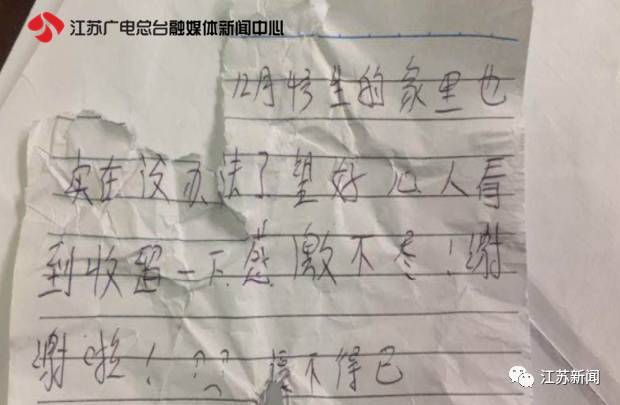 江苏广电总台融媒体新闻中心
12月特生的家里也
实在没办法了望好心人看
到收留一下感激不尽！谢
谢啦！？？ 不得已
江苏新闻